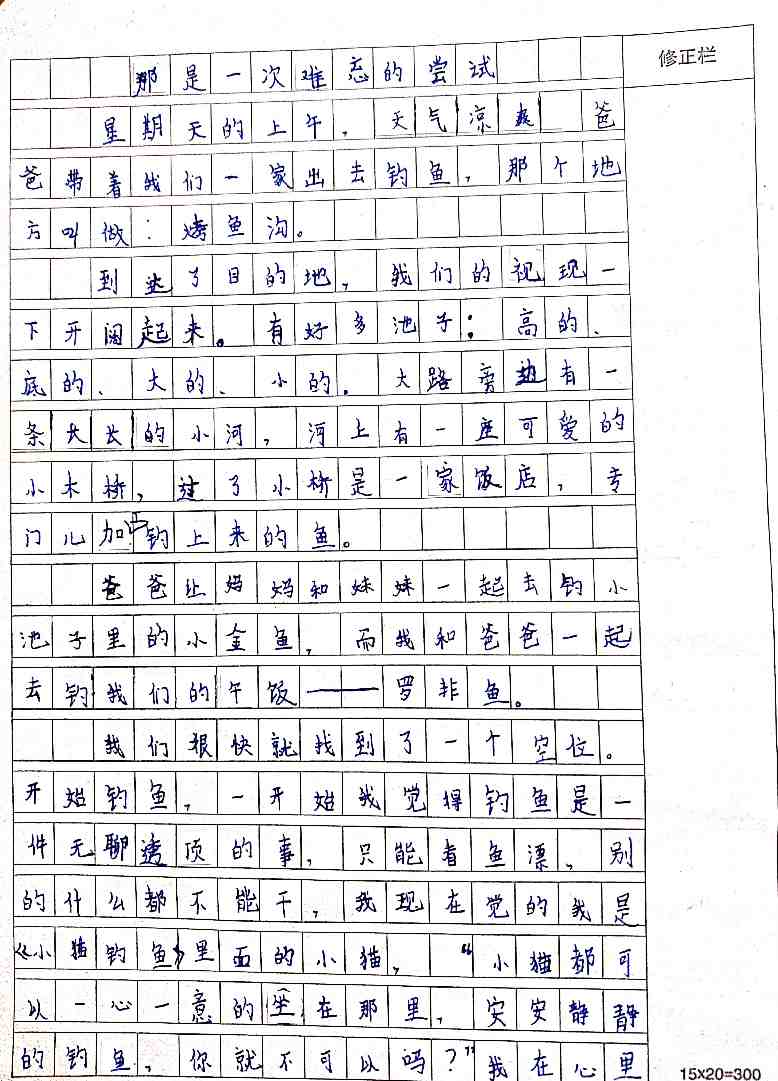 修正栏
那是一次难忘的尝试
星期天的上午，天气凉爽 爸
爸带着我们一家出去钓鱼，那个地
方叫做：烤鱼沟。
到达了目的地，我们的视现一
下开阔起来。有好多池子：高的、
底的、大的、小的。大路旁边有一
条长长的小河，河上有一座可爱的
小木桥，过了小桥是一家饭店，专
门儿加工钓上来的鱼。
爸爸让妈妈和妹妹一起去钓小
池子里的小金鱼，而我和爸爸一起
去钓我们的午饭——罗非鱼。
我们很快就找到了一个空位。
开始钓鱼，一开始我觉得钓鱼是一
件无聊透顶的事，只能看鱼漂，别
的什么都不能干，我现在觉的我是
《小猫钓鱼》里面的小猫，“小猫都可
以一心一意的坐在那里，安安静静
的钓鱼，你就不可以吗？”我在心里
15×20=300